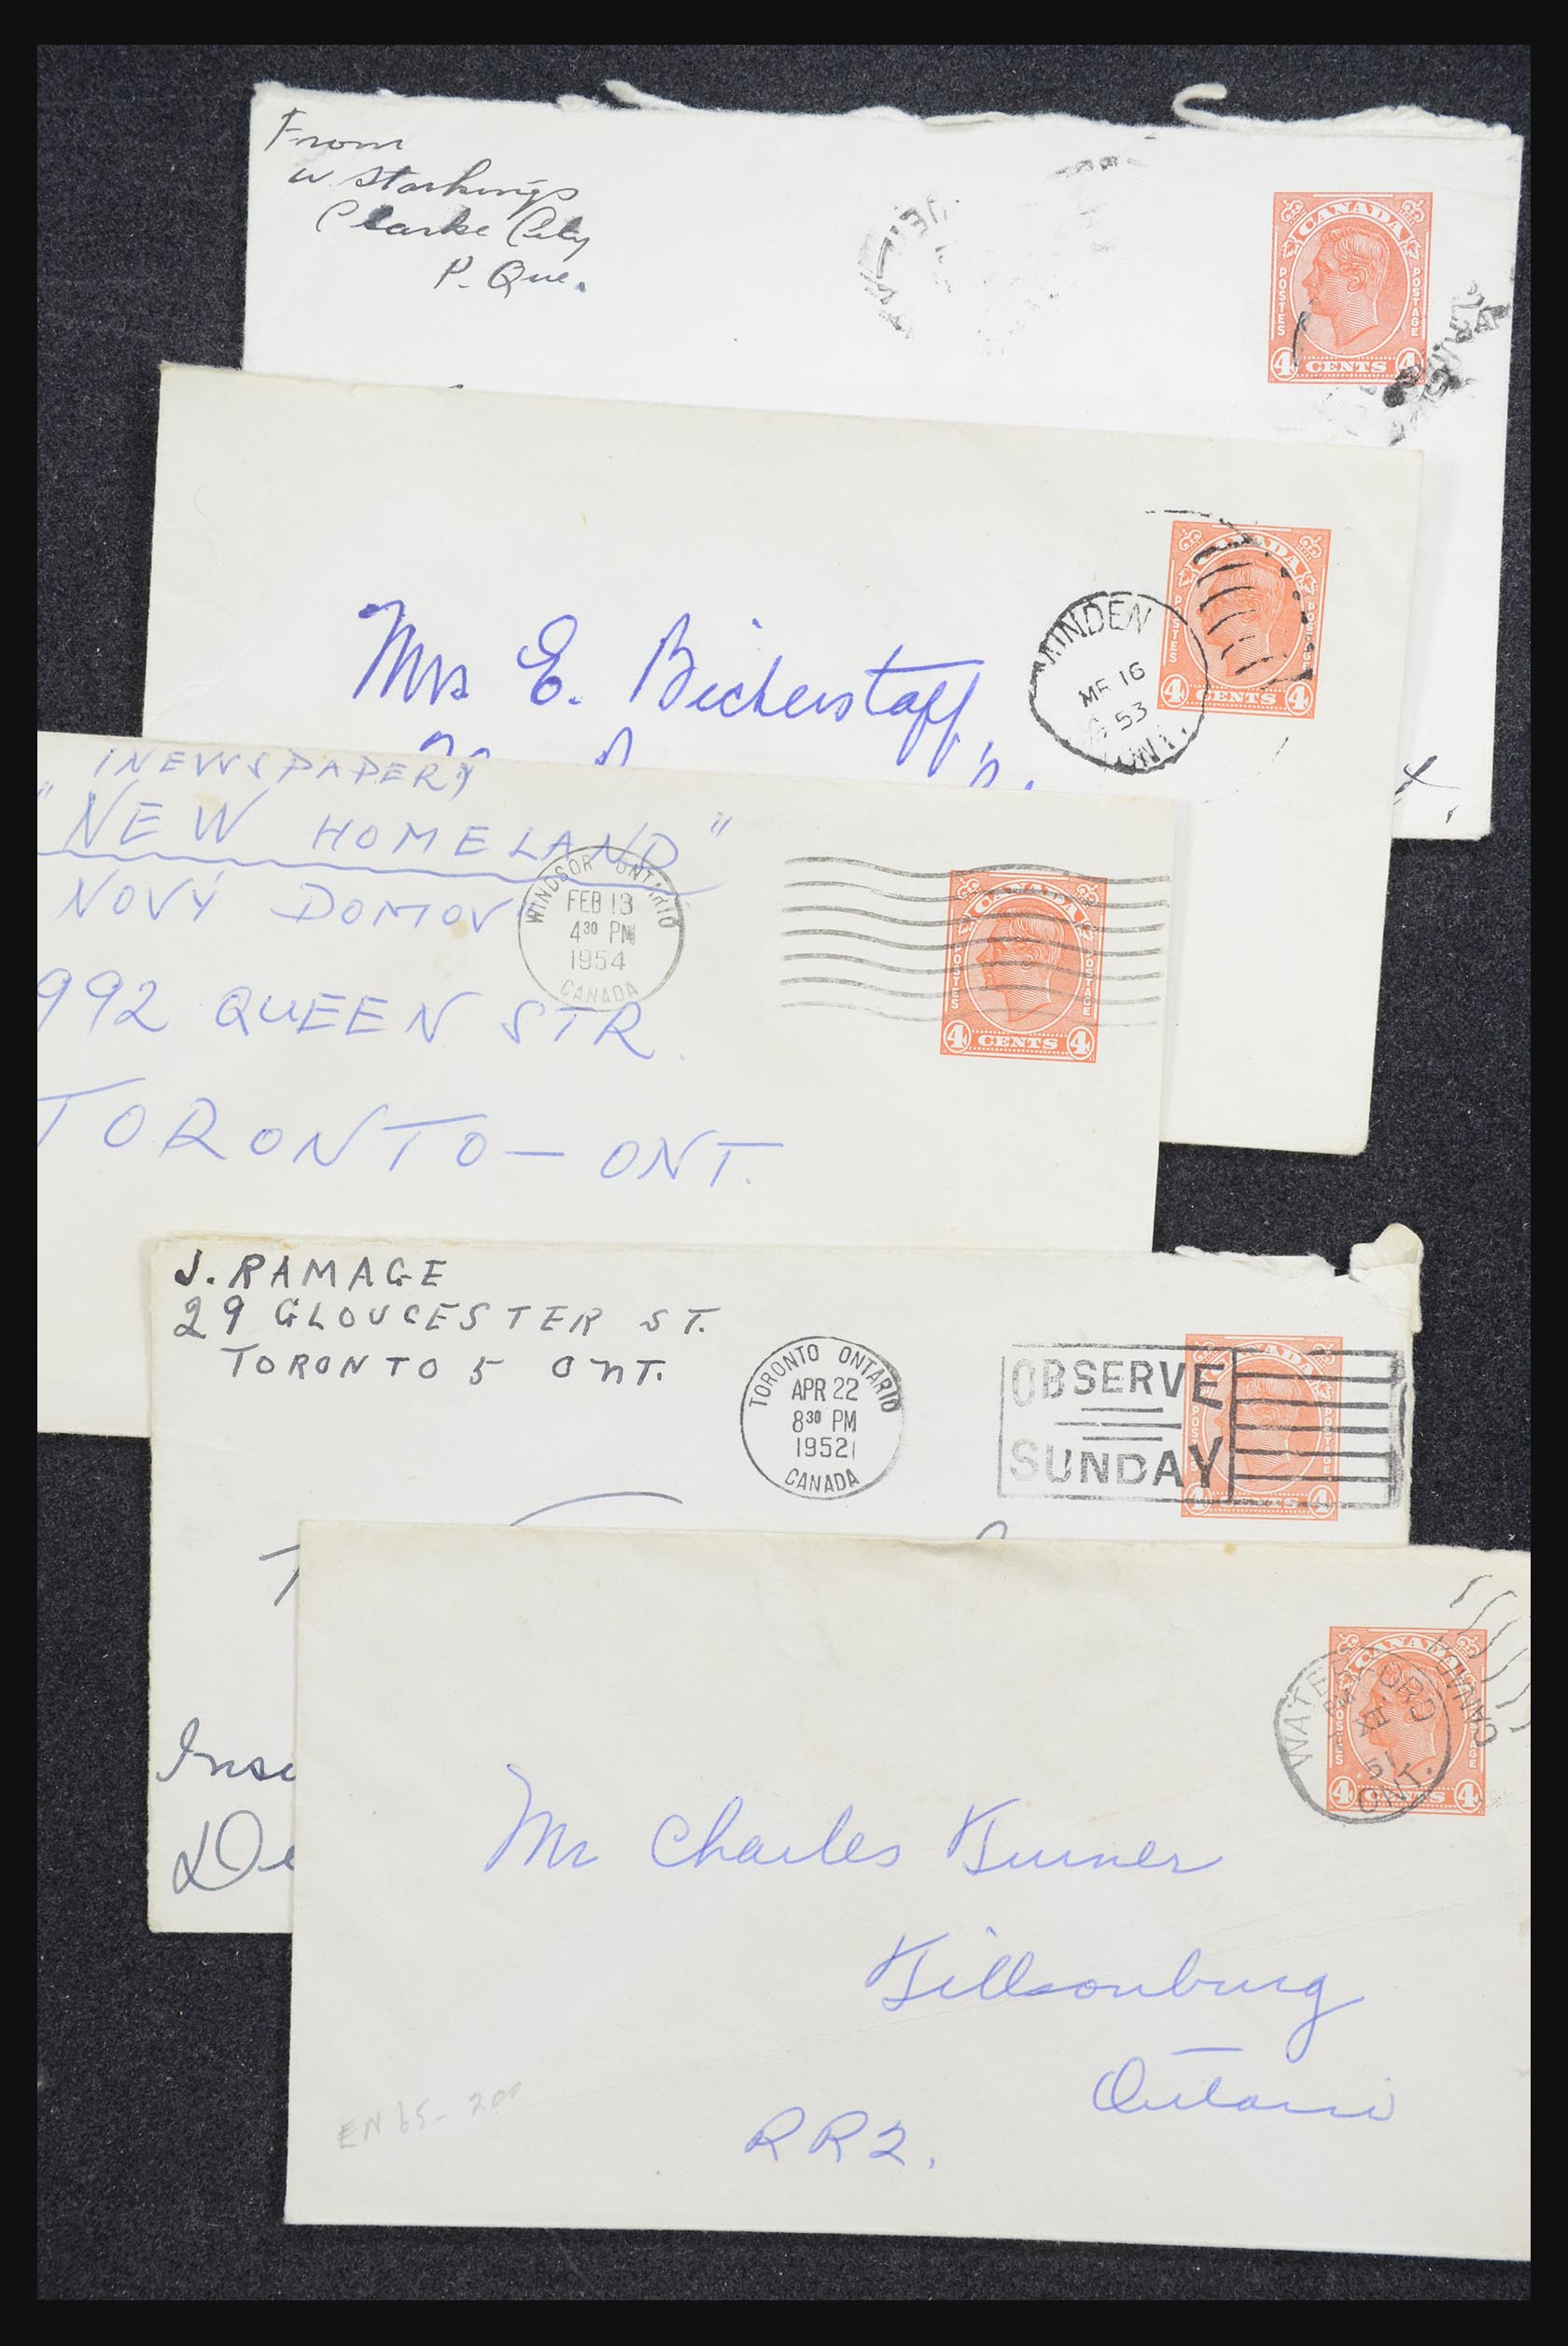 From
W. Starkings
Clarke City
P. Que.
CANADA
POSTES
POSTAGE
4 CENTS 4
Mrs E. Bickerstaff,
MINDEN
MR 16
53
ONT.
CANADA
POSTES
POSTAGE
4 CENTS 4
(NEWSPAPER)
"NEW HOMELAND"
NOVÝ DOMOV
992 QUEEN STR.
TORONTO — ONT.
WINDSOR ONTARIO
FEB 13
4 30 PM
1954
CANADA
CANADA
POSTES
POSTAGE
4 CENTS 4
J. RAMAGE
29 GLOUCESTER ST.
TORONTO 5 ONT.
TORONTO ONTARIO
APR 22
8 30 PM
1952
CANADA
OBSERVE
SUNDAY
CANADA
POSTES
POSTAGE
4 CENTS 4
Mr Charles Turner
Tillsonburg
Ontario
RR2.
EN65-200
WATERFORD
XII
51
ONT.
CANADA
CANADA
POSTES
POSTAGE
4 CENTS 4